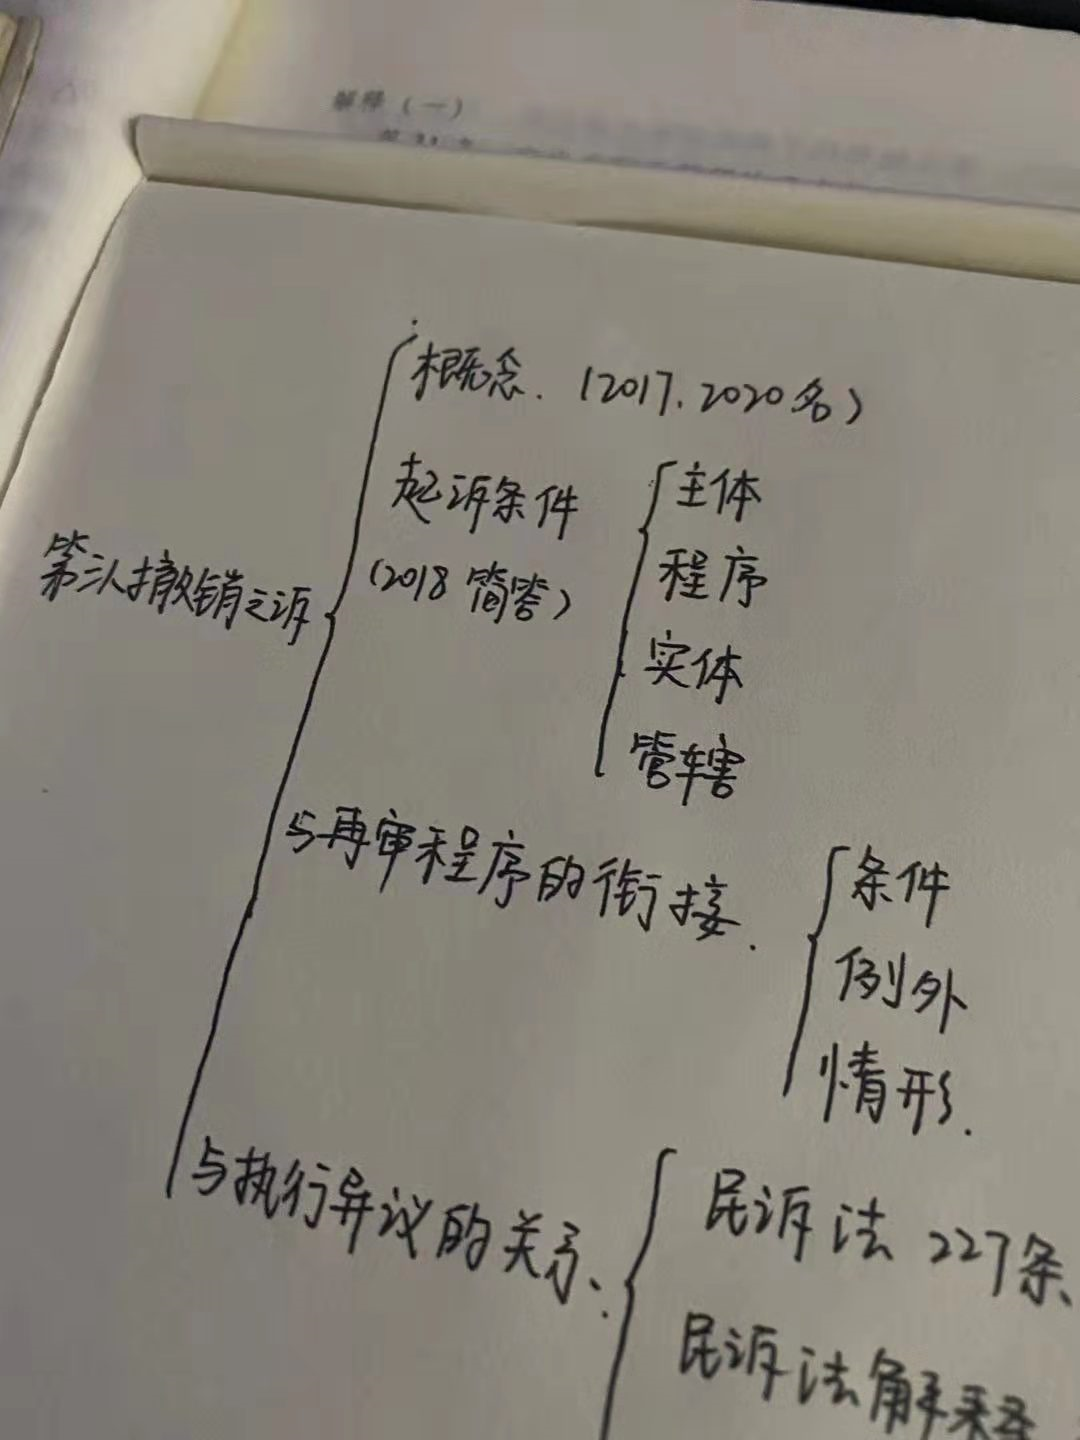 解释（一）
概念.（2017、2020名）
起诉条件
（2018 简答）
主体
程序
实体
管辖
第三人撤销之诉
与再审程序的衔接.
条件
例外
情形.
与执行异议的关系、
民诉法 227条、
民诉法解释